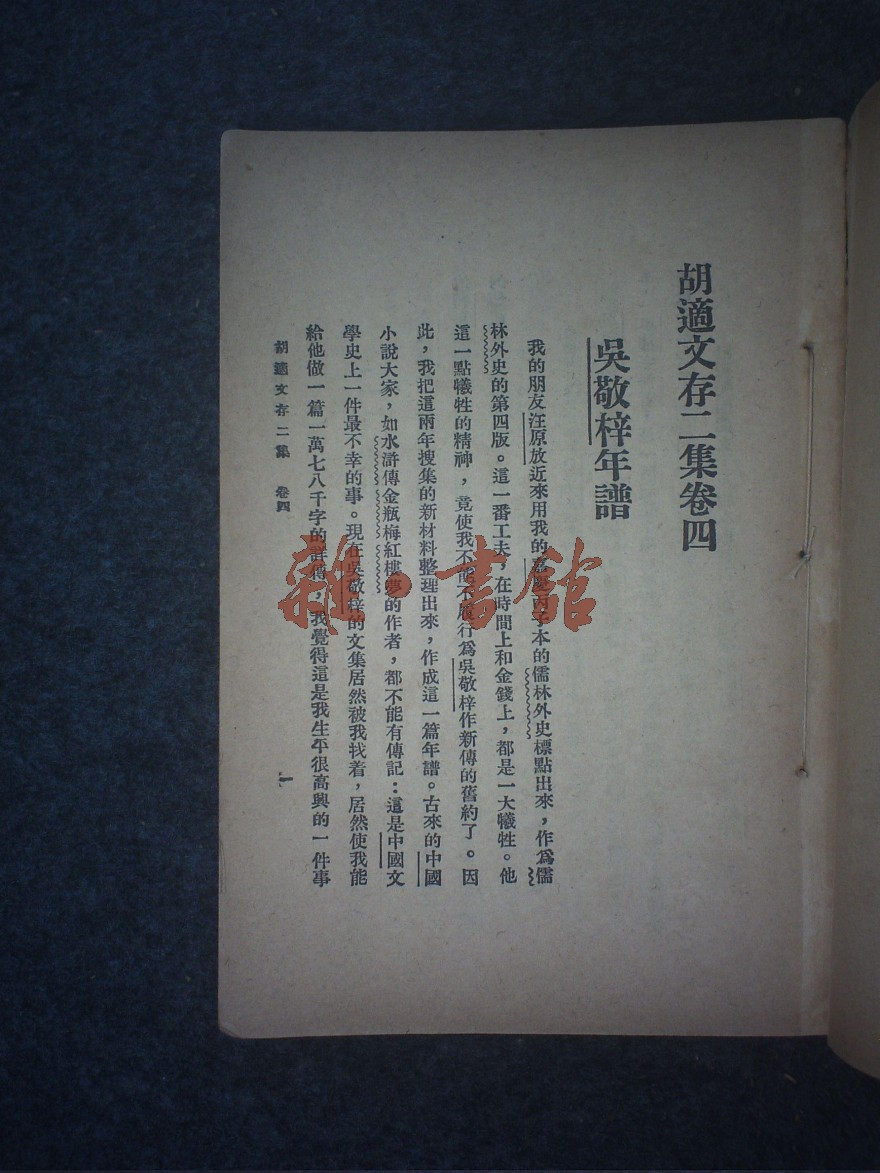 胡適文存二集卷四
吳敬梓年譜
我的朋友汪原放近來用我的嘉慶丙子本的儒林外史標點出來，作爲儒
林外史的第四版。這一番工夫，在時間上和金錢上，都是一大犧牲。他
這一點犧牲的精神，竟使我不能不履行爲吳敬梓作新傳的舊約了。因
此，我把這兩年搜集的新材料整理出來，作成這一篇年譜。古來的中國
小說大家，如水滸傳金瓶梅紅樓夢的作者，都不能有傳記：這是中國文
學史上一件最不幸的事。現在吳敬梓的文集居然被我找着，居然使我能
給他做一篇一萬七八千字的詳傳，我覺得這是我生平很高興的一件事
胡適文存二集　卷四
一
雜·書館